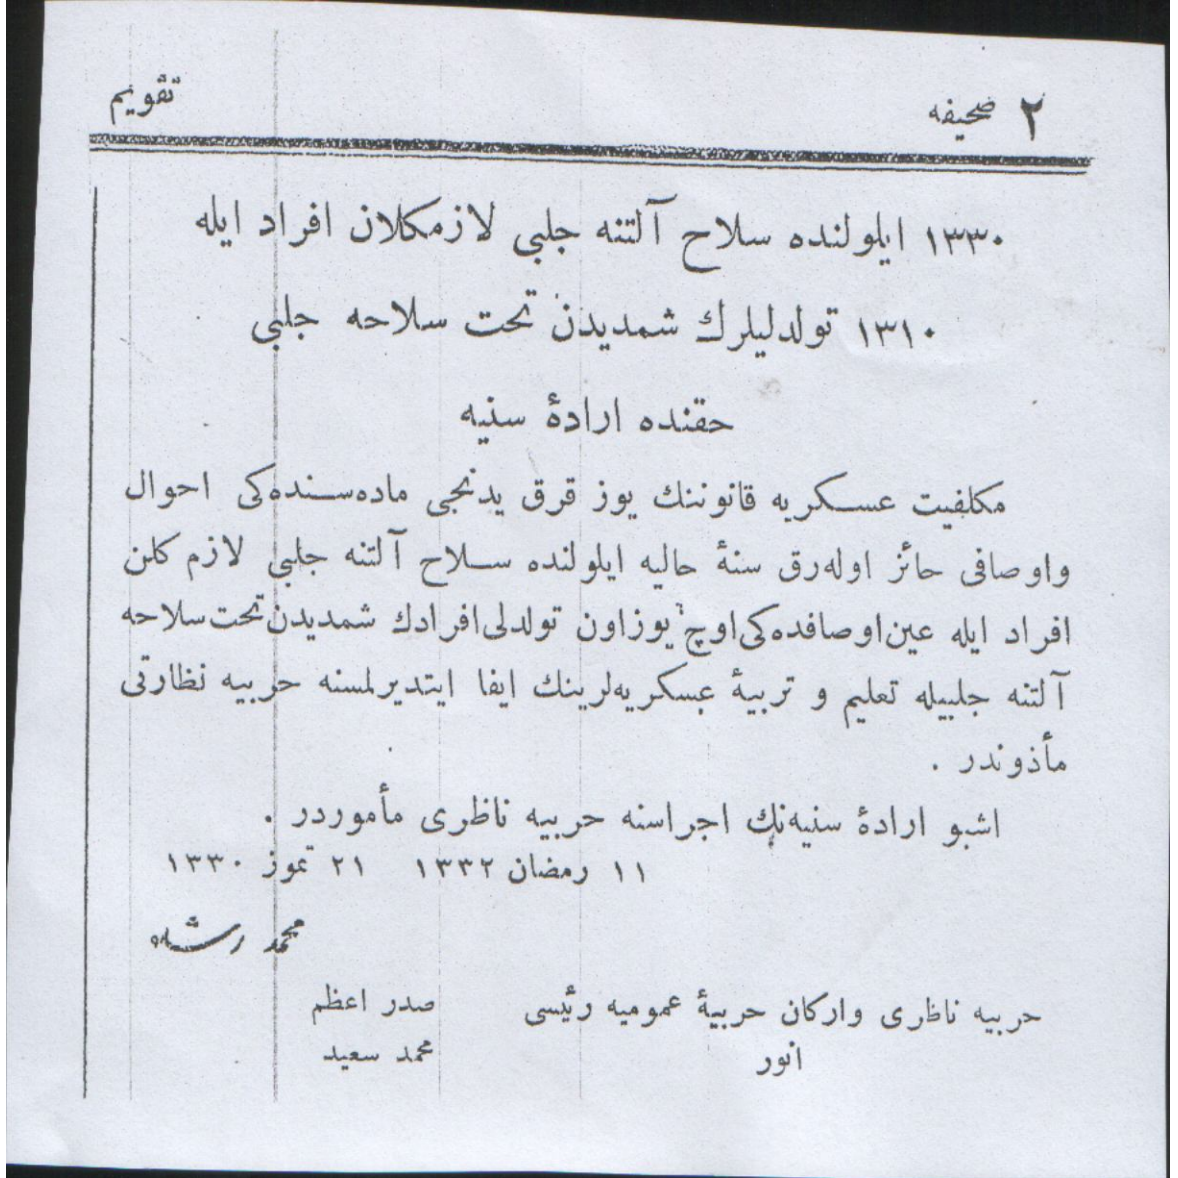 ٢ صحيفه
تقويم
١٣٣٠ ايلولنده سلاح آلتنه جلبی لازمكلان افراد ايله
١٣١٠ تولدليلرك شمديدن تحت سلاحه جلبی
حقنده ارادۀ سنيه
مكلفيت عسكريه قانوننك يوز قرق يدنجی ماده‌سنده‌كی احوال
واوصافی حائز اوله‌رق سنۀ حاليه ايلولنده سلاح آلتنه جلبی لازم كلن
افراد ايله عين اوصافده‌كی اوچ يوز اون تولدلی افرادك شمديدن تحت سلاحه
آلتنه جلبيله تعليم و تربيۀ عسكريه‌لرينك ايفا ايتديرلمسنه حربيه نظارتی
مأذوندر .
اشبو ارادۀ سنيه‌نك اجراسنه حربيه ناظری مأموردر .
١١ رمضان ١٣٣٢ ٢١ تموز ١٣٣٠
محمد رشاد
حربيه ناظری واركان حربيۀ عموميه رئيسی
انور
صدر اعظم
محمد سعيد